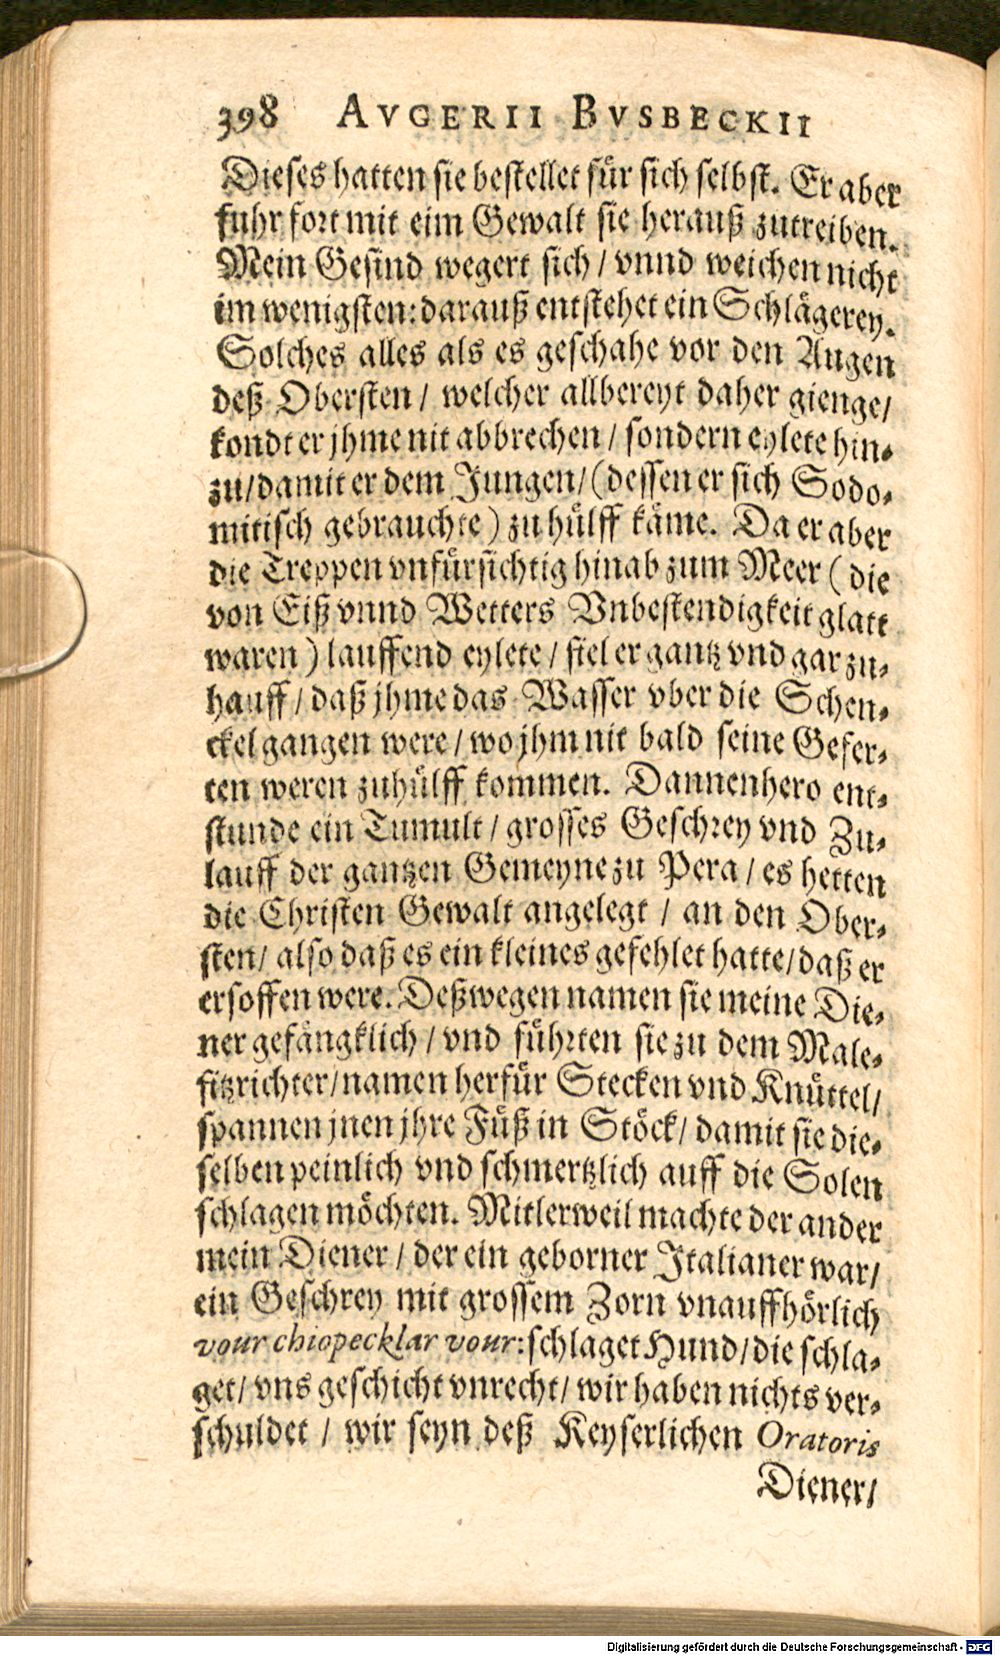 398 AVGERII BVSBECKII
Dieses hatten sie bestellet für sich selbst. Er aber
fuhr fort mit eim Gewalt sie herauß zutreiben.
Mein Gesind wegert sich / vnnd weichen nicht
im wenigsten: darauß entstehet ein Schlägerey.
Solches alles als es geschahe vor den Augen
deß Obersten / welcher allbereyt daher gienge /
kondt er jhme nit abbrechen / sondern eylete hin-
zu / damit er dem Jungen / (dessen er sich Sodo-
mitisch gebrauchte) zu hülff käme. Da er aber
die Treppen vnfürsichtig hinab zum Meer (die
von Eiß vnnd Wetters Vnbestendigkeit glatt
waren) lauffend eylete / fiel er gantz vnd gar zu-
hauff / daß jhme das Wasser vber die Schen-
ckel gangen were / wo jhm nit bald seine Gefer-
ten weren zuhülff kommen. Dannenhero ent-
stunde ein Tumult / grosses Geschrey vnd Zu-
lauff der gantzen Gemeyne zu Pera / es hetten
die Christen Gewalt angelegt / an den Ober-
sten / also daß es ein kleines gefehlet hatte / daß er
ersoffen were. Deßwegen namen sie meine Die-
ner gefängklich / vnd führten sie zu dem Male-
fitzrichter / namen herfür Stecken vnd Knüttel /
spannen jnen jhre Füß in Stöck / damit sie die-
selben peinlich vnd schmertzlich auff die Solen
schlagen möchten. Mitlerweil machte der ander
mein Diener / der ein geborner Italianer war /
ein Geschrey mit grossem Zorn vnauffhörlich
vour chiopecklar vour: schlaget Hund / die schla-
get / vns geschicht vnrecht / wir haben nichts ver-
schuldet / wir seyn deß Keyserlichen Oratoris
Diener /
Digitalisierung gefördert durch die Deutsche Forschungsgemeinschaft - DFG